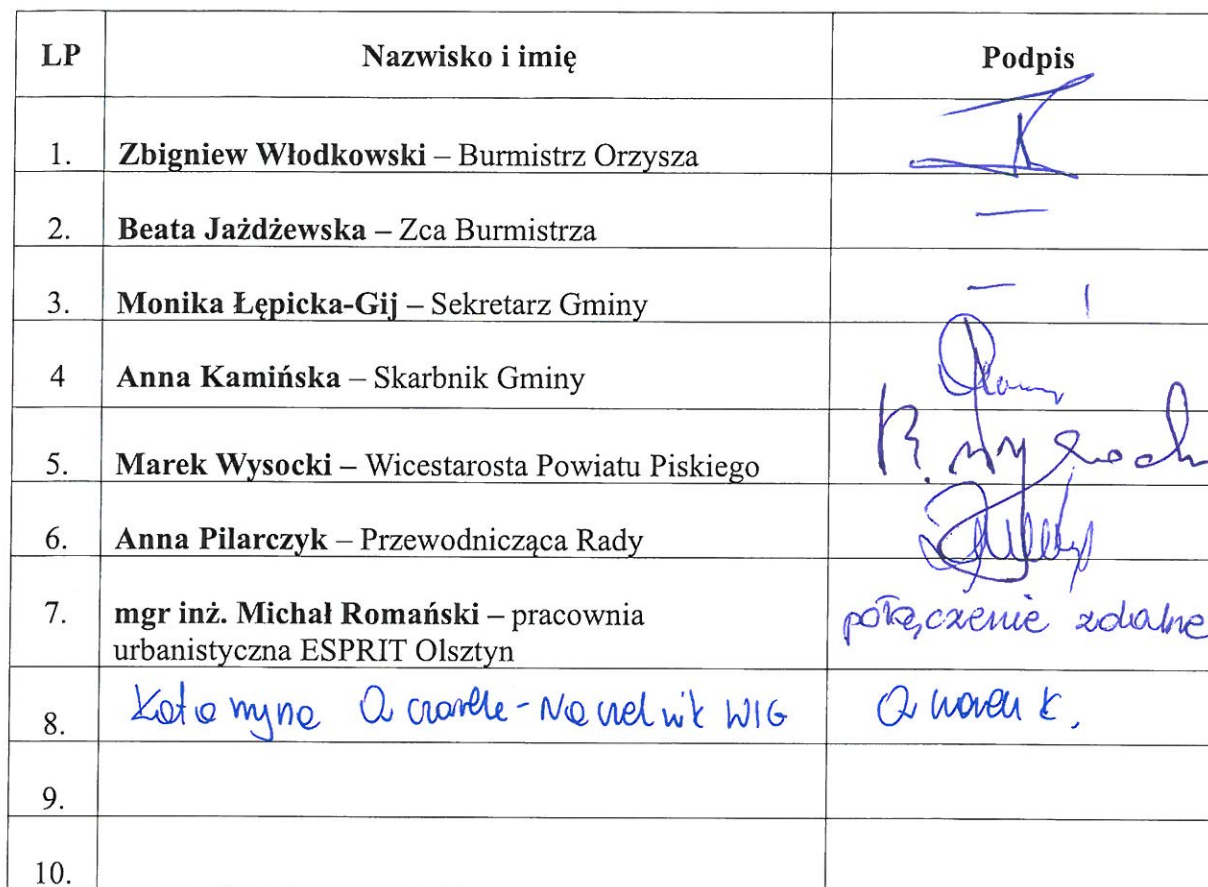 LP Nazwisko i imię Podpis
1. Zbigniew Włodkowski – Burmistrz Orzysza
2. Beata Jażdżewska – Zca Burmistrza —
3. Monika Łępicka-Gij – Sekretarz Gminy —
4 Anna Kamińska – Skarbnik Gminy
5. Marek Wysocki – Wicestarosta Powiatu Piskiego
6. Anna Pilarczyk – Przewodnicząca Rady
7. mgr inż. Michał Romański – pracownia połączenie zdalne
urbanistyczna ESPRIT Olsztyn
8. Katarzyna - Naczelnik WIG
9.
10.